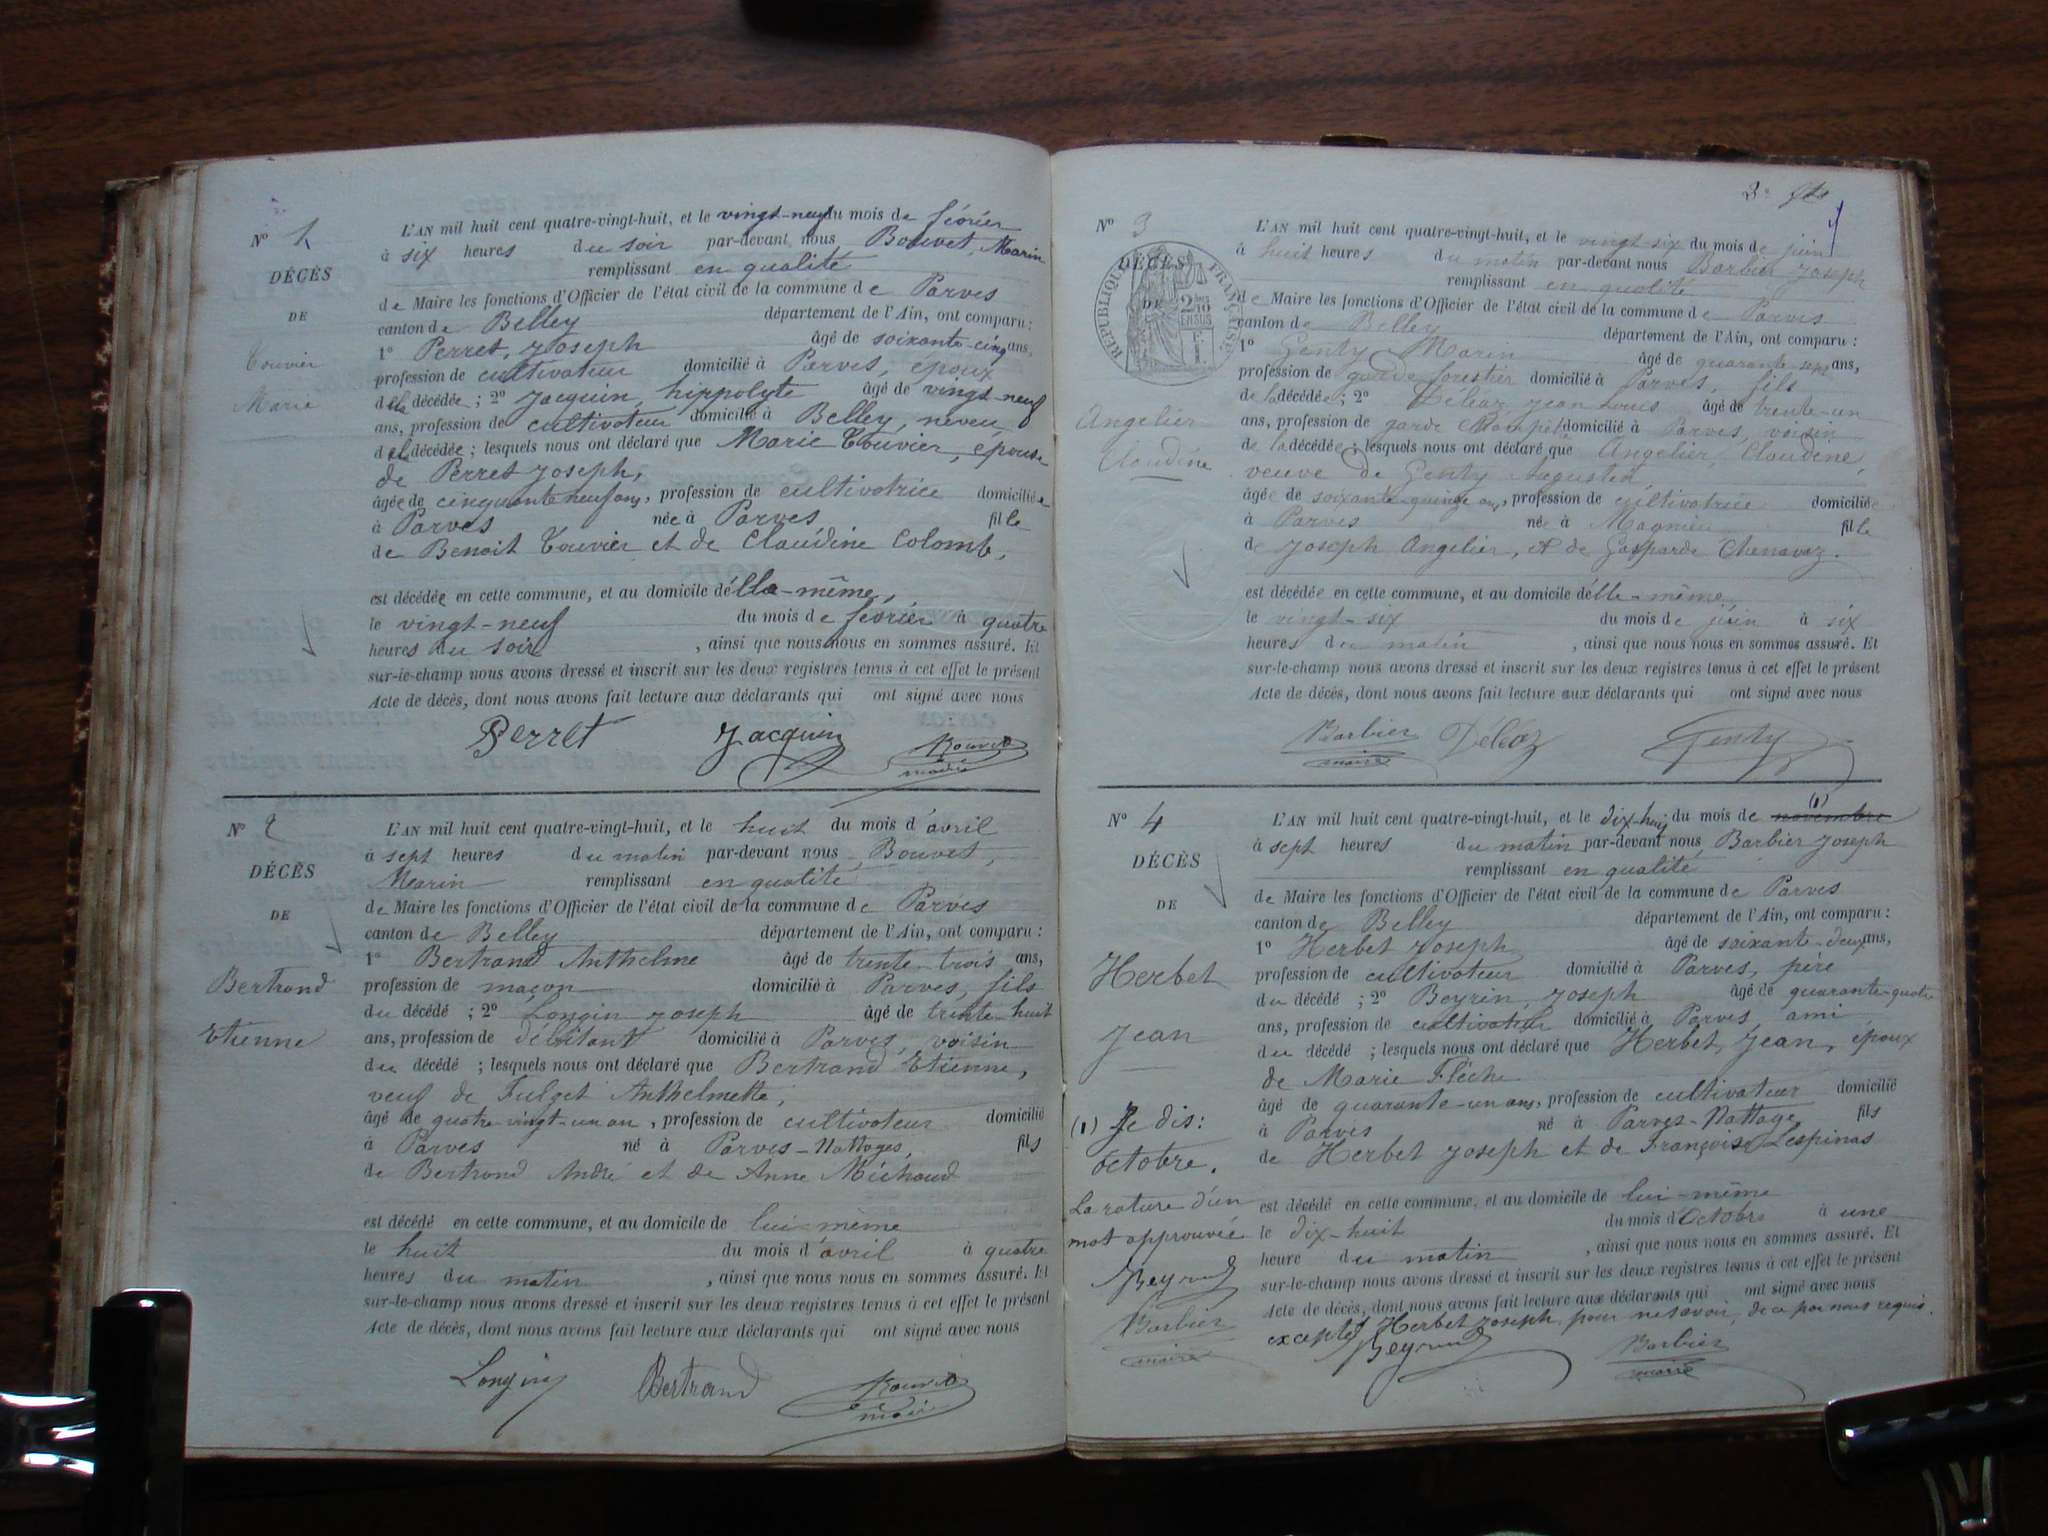 N° 1
DÉCÈS
DE
Touvier
Marie
L'AN mil huit cent quatre-vingt-huit, et le vingt-neuf du mois de février
à six heures du soir par-devant nous Bouvet, Marin
remplissant en qualité
de Maire les fonctions d'Officier de l'état civil de la commune de Parves
canton de Belley département de l'Ain, ont comparu :
1° Perret, Joseph âgé de soixante-cinq ans,
profession de cultivateur domicilié à Parves, époux
de la décédée ; 2° Jacquin, hippolyte âgé de vingt-neuf
ans, profession de cultivateur domicilié à Belley, neveu
de la décédée ; lesquels nous ont déclaré que Marie Touvier, épouse
de Perret Joseph,
âgée de cinquante neuf ans, profession de cultivatrice domiciliée
à Parves née à Parves fille
de Benoit Touvier et de Claudine Colomb,
est décédée en cette commune, et au domicile d'élle-même,
le vingt-neuf du mois de février à quatre
heures du soir , ainsi que nous nous en sommes assuré. Et
sur-le-champ nous avons dressé et inscrit sur les deux registres tenus à cet effet le présent
Acte de décès, dont nous avons fait lecture aux déclarants qui ont signé avec nous
Perret Jacquin Bouvet
maire
N° 2
DÉCÈS
DE
Bertrand
Etienne
L'AN mil huit cent quatre-vingt-huit, et le huit du mois d'avril
à sept heures du matin par-devant nous Bouvet,
Marin remplissant en qualité
de Maire les fonctions d'Officier de l'état civil de la commune de Parves
canton de Belley département de l'Ain, ont comparu :
1° Bertrand Anthelme âgé de trente-trois ans,
profession de maçon domicilié à Parves, fils
du décédé ; 2° Longin Joseph âgé de trente-huit
ans, profession de débitant domicilié à Parves, voisin
du décédé ; lesquels nous ont déclaré que Bertrand Etienne,
veuf de Anthelmette,
âgé de quatre-vingt-un an, profession de cultivateur domicilié
à Parves né à Parves-Nattages, fils
de Bertrand André et de Anne Michaud
est décédé en cette commune, et au domicile de lui-même
le huit du mois d'avril à quatre
heures du matin , ainsi que nous nous en sommes assuré. Et
sur-le-champ nous avons dressé et inscrit sur les deux registres tenus à cet effet le présent
Acte de décès, dont nous avons fait lecture aux déclarants qui ont signé avec nous
Longin Bertrand Bouvet
maire
N° 3
DÉCÈS
DE
RÉPUBLIQUE FRANÇAISE
Angelier
Claudine
L'AN mil huit cent quatre-vingt-huit, et le vingt-six du mois de juin
à huit heures du matin par-devant nous Barbier Joseph
remplissant en qualité
de Maire les fonctions d'Officier de l'état civil de la commune de Parves
canton de Belley département de l'Ain, ont comparu :
1° Genty Marin âgé de quarante sept ans,
profession de garde forestier domicilié à Parves, fils
de la décédée ; 2° Déléaz, Jean Louis âgé de trente-un
ans, profession de garde champêt domicilié à Parves, voisin
de la décédée ; lesquels nous ont déclaré que Angelier, Claudine,
veuve de Genty Augustin
âgée de soixante-quinze ans, profession de cultivatrice domiciliée
à Parves née à Magnieu fille
de Joseph Angelier, et de Gasparde Chenavaz.
est décédée en cette commune, et au domicile d'élle-même
le vingt-six du mois de juin à six
heures du matin , ainsi que nous nous en sommes assuré. Et
sur-le-champ nous avons dressé et inscrit sur les deux registres tenus à cet effet le présent
Acte de décès, dont nous avons fait lecture aux déclarants qui ont signé avec nous
Barbier Déléaz Genty
maire
N° 4
DÉCÈS
DE
Herbet
Jean
(1) Je dis :
octobre.
La rature d'un
mot approuvée
Barbier
maire
L'AN mil huit cent quatre-vingt-huit, et le dix-huit du mois de novembre (1)
à sept heures du matin par-devant nous Barbier Joseph
remplissant en qualité
de Maire les fonctions d'Officier de l'état civil de la commune de Parves
canton de Belley département de l'Ain, ont comparu :
1° Herbet Joseph âgé de soixante-deux ans,
profession de cultivateur domicilié à Parves, père
du décédé ; 2° Joseph âgé de quarante-quatre
ans, profession de cultivateur domicilié à Parves ami
du décédé ; lesquels nous ont déclaré que Herbet, Jean, époux
de Marie Flèche
âgé de quarante-un ans, profession de cultivateur domicilié
à Parves né à Parves-Nattage, fils
de Herbet Joseph et de Françoise Lespinas
est décédé en cette commune, et au domicile de lui-même
le dix-huit du mois d'Octobre à une
heure du matin , ainsi que nous nous en sommes assuré. Et
sur-le-champ nous avons dressé et inscrit sur les deux registres tenus à cet effet le présent
Acte de décès, dont nous avons fait lecture aux déclarants qui ont signé avec nous
excepté Herbet Joseph pour ne savoir, de ce par nous requis.
Barbier
maire